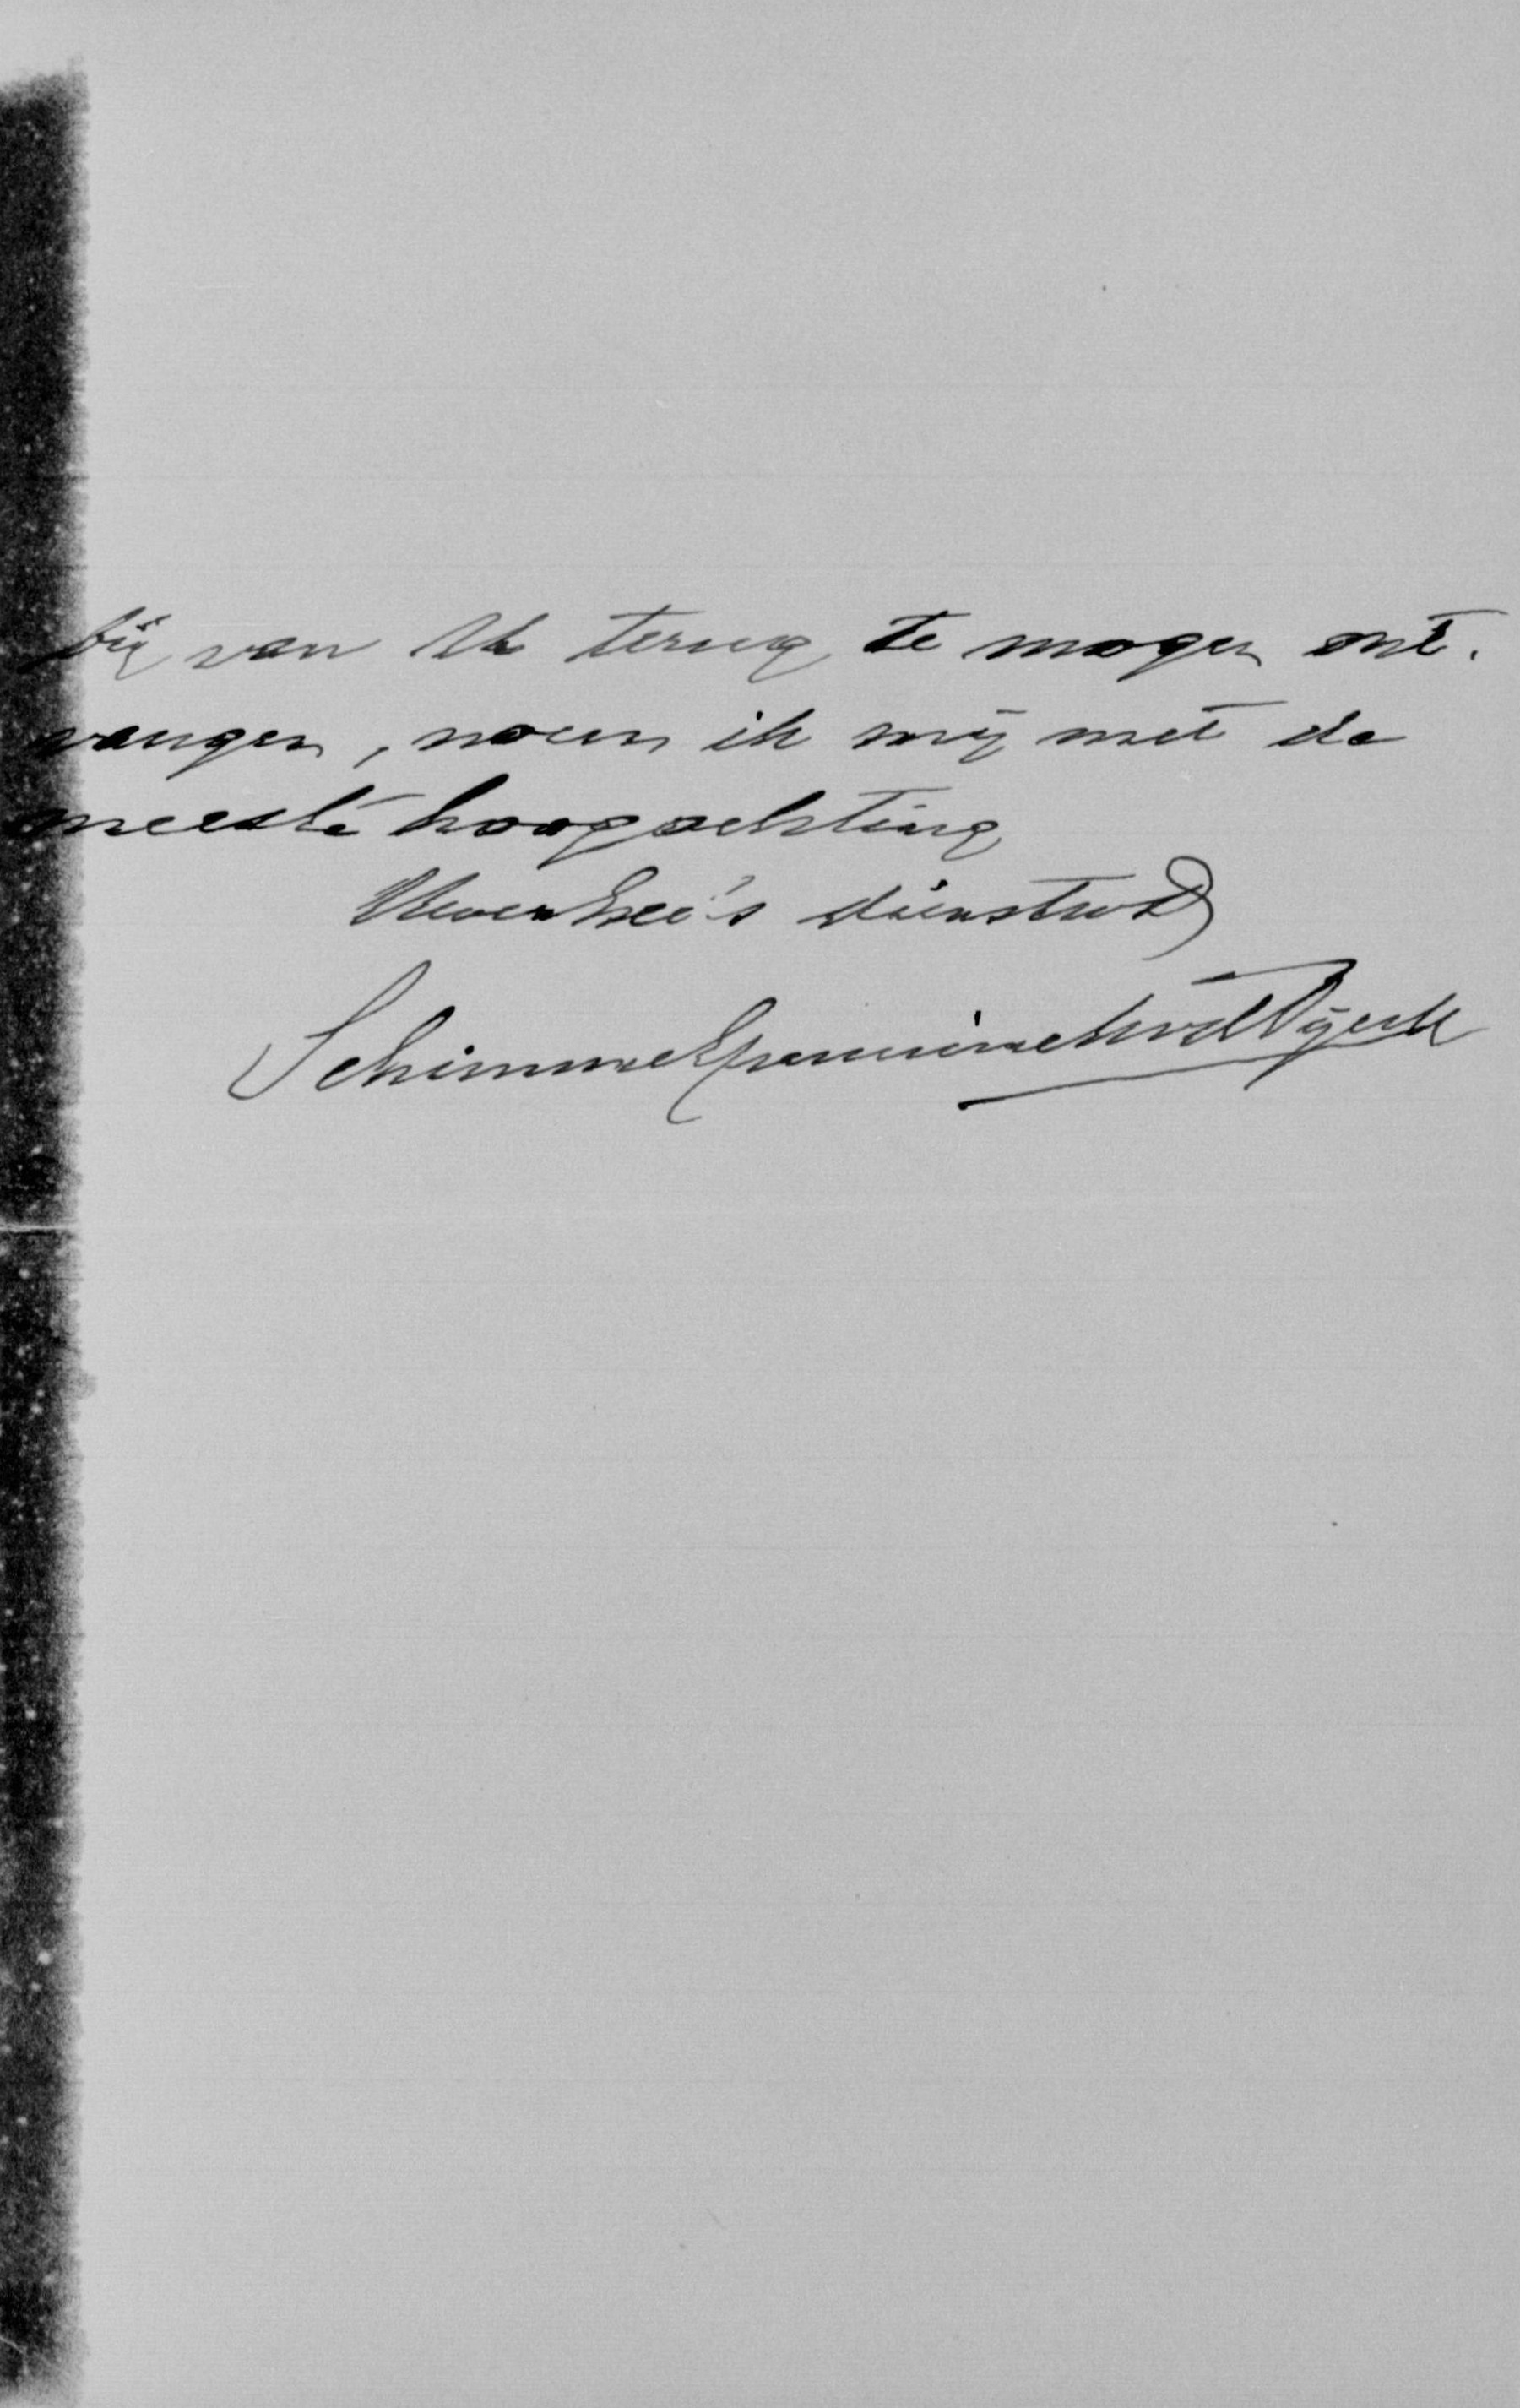 bij van Uw terug te mogen ont-
vangen, noem ik mij met de
meeste hoogachting
UwenExc's dienstw
Schimmelpenninckvd Oijech